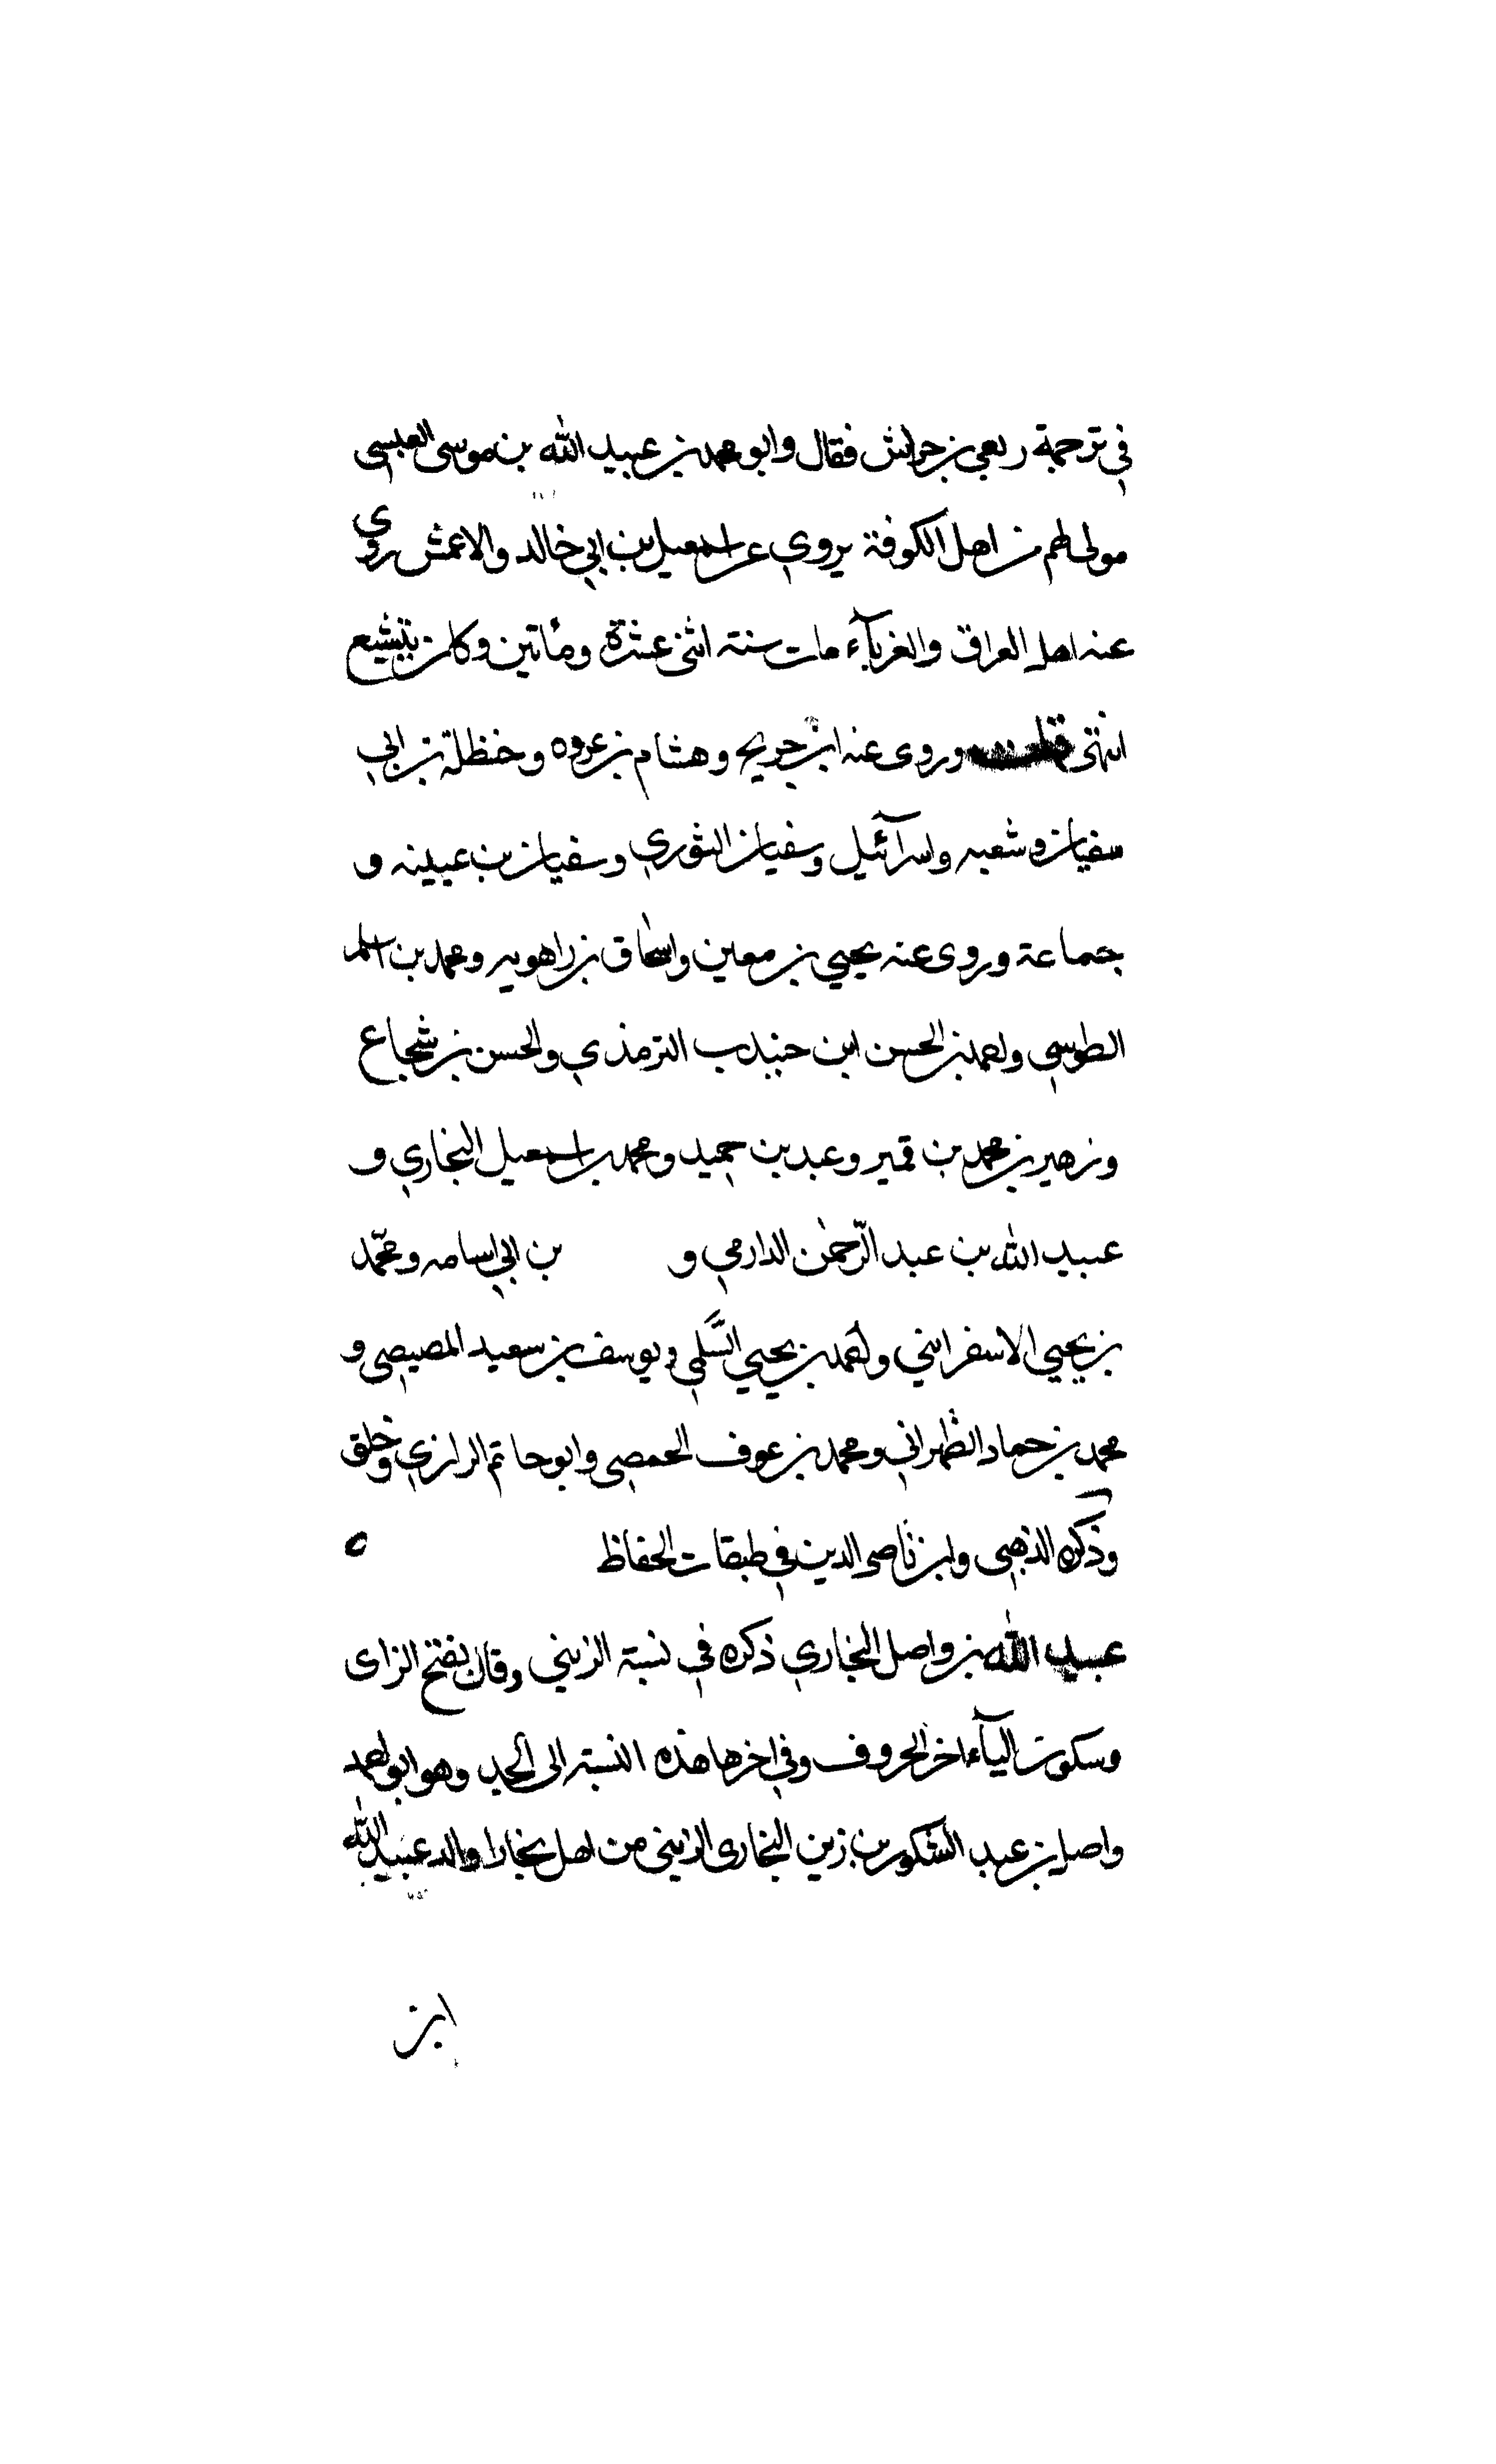 في ترجمة ربعي بن حراش فقال وابو محمد بن عبيد الله بن موسى العبسي
مولى لهم من اهل الكوفة يروي عن اسمعيل بن ابي خالد والاعمش روى
عنه اهل العراق والغربآء مات سنة اثنى عشرة ومأتين وكان يتشيع
انتهى قلت وروى عنه ابن جريج وهشام بن عروه وحنظلة بن ابي
سفيان وشعبه واسرآئيل وسفيان الثوري وسفيان بن عيينه و
جماعة وروى عنه يحيي بن معين واسحاق بن راهويه ومحمد بن اسلم
الطوسي واحمد بن الحسن ابن جنيدب الترمذي والحسن بن شجاع
وزهير بن محمد بن قمير وعبد بن حميد ومحمد بن اسمعيل البخاري و
عبيد الله بن عبد الرّحمٰن الدارمي و بن ابي اسامه ومحمّد
بن يحيي الاسفرايني واحمد بن يحيي السَّلمي ويوسف بن سعيد المصيصي و
محمد بن حماد الظهراني ومحمد بن عوف الحمصي وابو حاتم الرازي وخلق
وذكره الذهبي وابن ناصر الدين في طبقات الحفاظ ه
عبيد الله بن واصل البخاري ذكره في نسبة الزيني وقال بفتح الزاى
وسكون اليآء اخر الحروف وفي اخرها هذه النسبة الى الجد وهو ابو احمد
واصل بن عبد الشكور بن زين البخارى الزيني من اهل بخارا والد عبيد الله
ابن